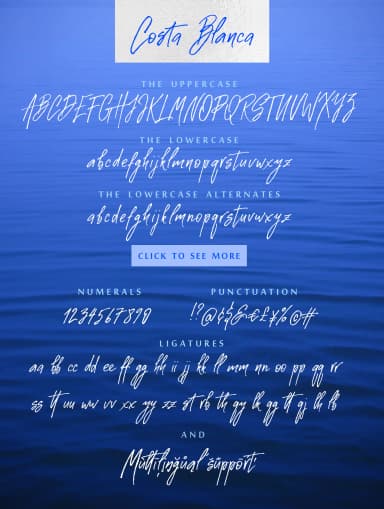 Costa Blanca
THE UPPERCASE
ABCDEFGHIJKLMNOPQRSTUVWXYZ
THE LOWERCASE
abcdefghijklmnopqrstuvwxyz
THE LOWERCASE ALTERNATES
abcdefghijklmnopqrstuvwxyz
CLICK TO SEE MORE
NUMERALS
1234567890
PUNCTUATION
LIGATURES
aa bb cc dd ee ff gg hh ii jj kk ll mm nn oo pp qq rr
ss tt uu ww vv xx yy zz st rb th
AND
Multilingual support